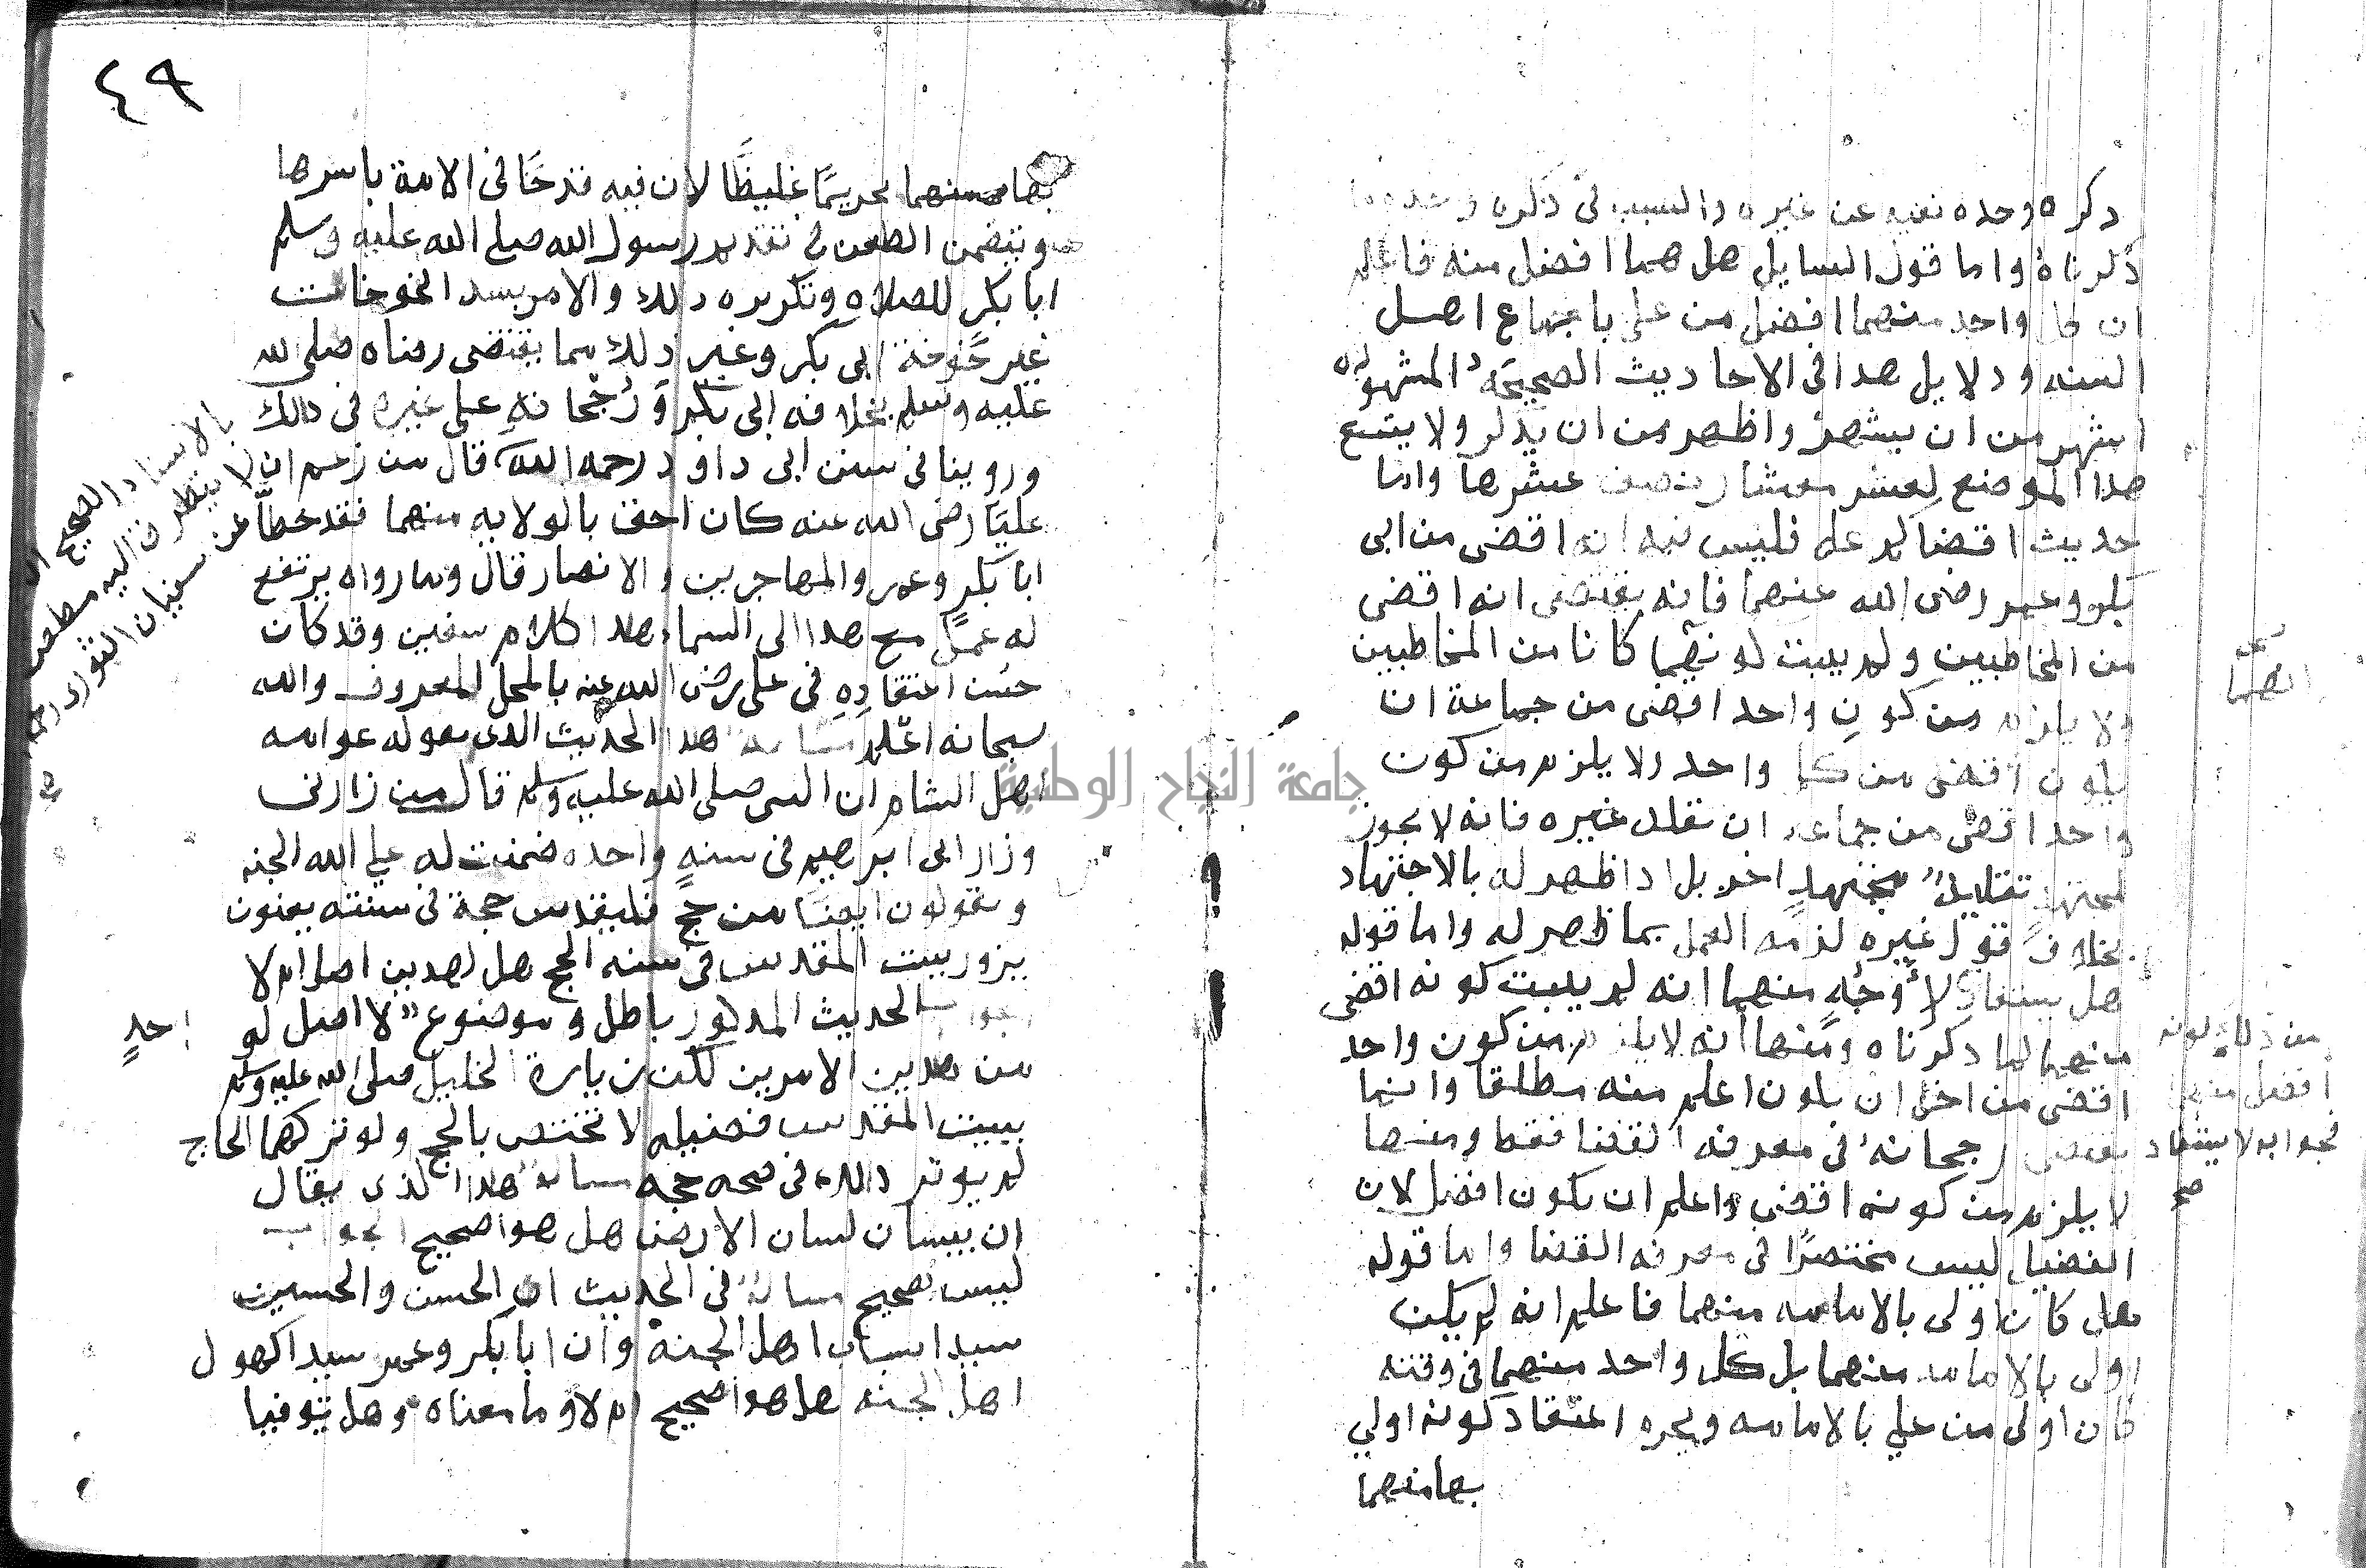 ذكره وحده نفيه عن غيره والسبب في ذكره وحده ما
ذكرناه واما قول السايل هل هما افضل منه فاعلم
ان كل واحد منهما افضل من علي باجماع اهل
السنه ودلايل هذا في الاحاديث الصحيحة المشهوره
اشهر من ان يشهر واظهر من ان يذكر ولا يتسع
هذا الموضع لعشر معشار نصف عشرها واما
حديث اقضاكم علي فليس فيه انه اقضى من ابي
بكر وعمر رضى الله عنهما فانه يقتضى انه اقضى
من المخاطبين ولم يثبت لو نهما كانا من المخاطبين
انهما
ولا يلزم من كون واحد اقضى من جماعة ان
يكون اقضى من كل واحد ولا يلزم من كون
واحد اقضى من جماعه ان نقلد غيره فانه لا يجوز
لمجتهد تقليد مجتهد اخر بل اذا ظهر له بالاجتهاد
بخلاف قول غيره لزمه العمل بما ظهر له واما قوله
هل يستفاد لأوجه منهما انه لم يثبت كونه اقضى
من ذلك كونه
افضل منهما
فجوابه لا يستفاد
صح
منهما لما ذكرناه ومنها انه لا يلزم من كون واحد
اقضى من اخر ان يكون اعلم منه مطلقا وانما
يقتضى رجحانه في معرفه القضا فقط ومنها
لا يلزم من كونه اقضى واعلم ان يكون افضل لان
الفضيل ليس مختصرا في معرفه القضا واما قوله
هل كان اولى بالامامه منهما فاعلم انه لم يكن
اولى بالامامه منهما بل كل واحد منهما في وقته
كان اولى من علي بالامامه ويحرم اعتقاد كونه اولي
بها منهما
٤٩
بها منهما تحريما غليظا لان فيه قدحا في الامة باسرها
ويتضمن الطعن في تقديم رسول الله صلى الله عليه وسلم
ابا بكر للصلاه وتكريره ذلك والامر بسد الخوخات
غير خوخة ابى بكر وغير ذلك مما يقتضى رضاه صلى الله
عليه وسلم بخلافه ابى بكر ورجحانه على غيره في ذلك
وروينا في سنن ابى داود رحمه الله قال من زعم ان
بالاسناد الصحيح
عن سفيان الثورى رحمه
عليا رضى الله عنه كان احق بالولايه منهما فقد خطأ
ابا بكر وعمر والمهاجرين والانصار قال وما رواه يرتفع
له عمل مع هذا الى السماء هذا كلام سفين وقد كان
حسن اعتقاده في على رضى الله عنه بالمحل المعروف والله
سبحانه اعلم مسألة هذا الحديث الذى يقوله عوامه
اهل الشام ان النبى صلى الله عليه وسلم قال من زارنى
وزار ابى ابرهيم في سنه واحده ضمنت له على الله الجنه
ويقولون ايضا من حج فليقدس حجة في سنته يعنون
يزور بيت المقدس في سنه الحج هل لهدين اصل ام لا
الجواب الحديث المذكور باطل وموضوع لا اصل لو
احد
من هدين الامرين لكن زيارة الخليل صلى الله عليه وسلم
ببيت المقدس فضيله لا تختص بالحج ولو تركهما الحاج
لم يوثر ذلك في صحه حجه مسالة هذا الذى يقال
ان بيسان لسان الارض هل هو صحيح الجواب
ليس بصحيح مسالة في الحديث ان الحسن والحسين
سيدا شباب اهل الجنة وان ابا بكر وعمر سيدا كهول
اهل الجنه هل هو صحيح ام لا وما معناه وهل توفيا
جامعة النجاح الوطنية